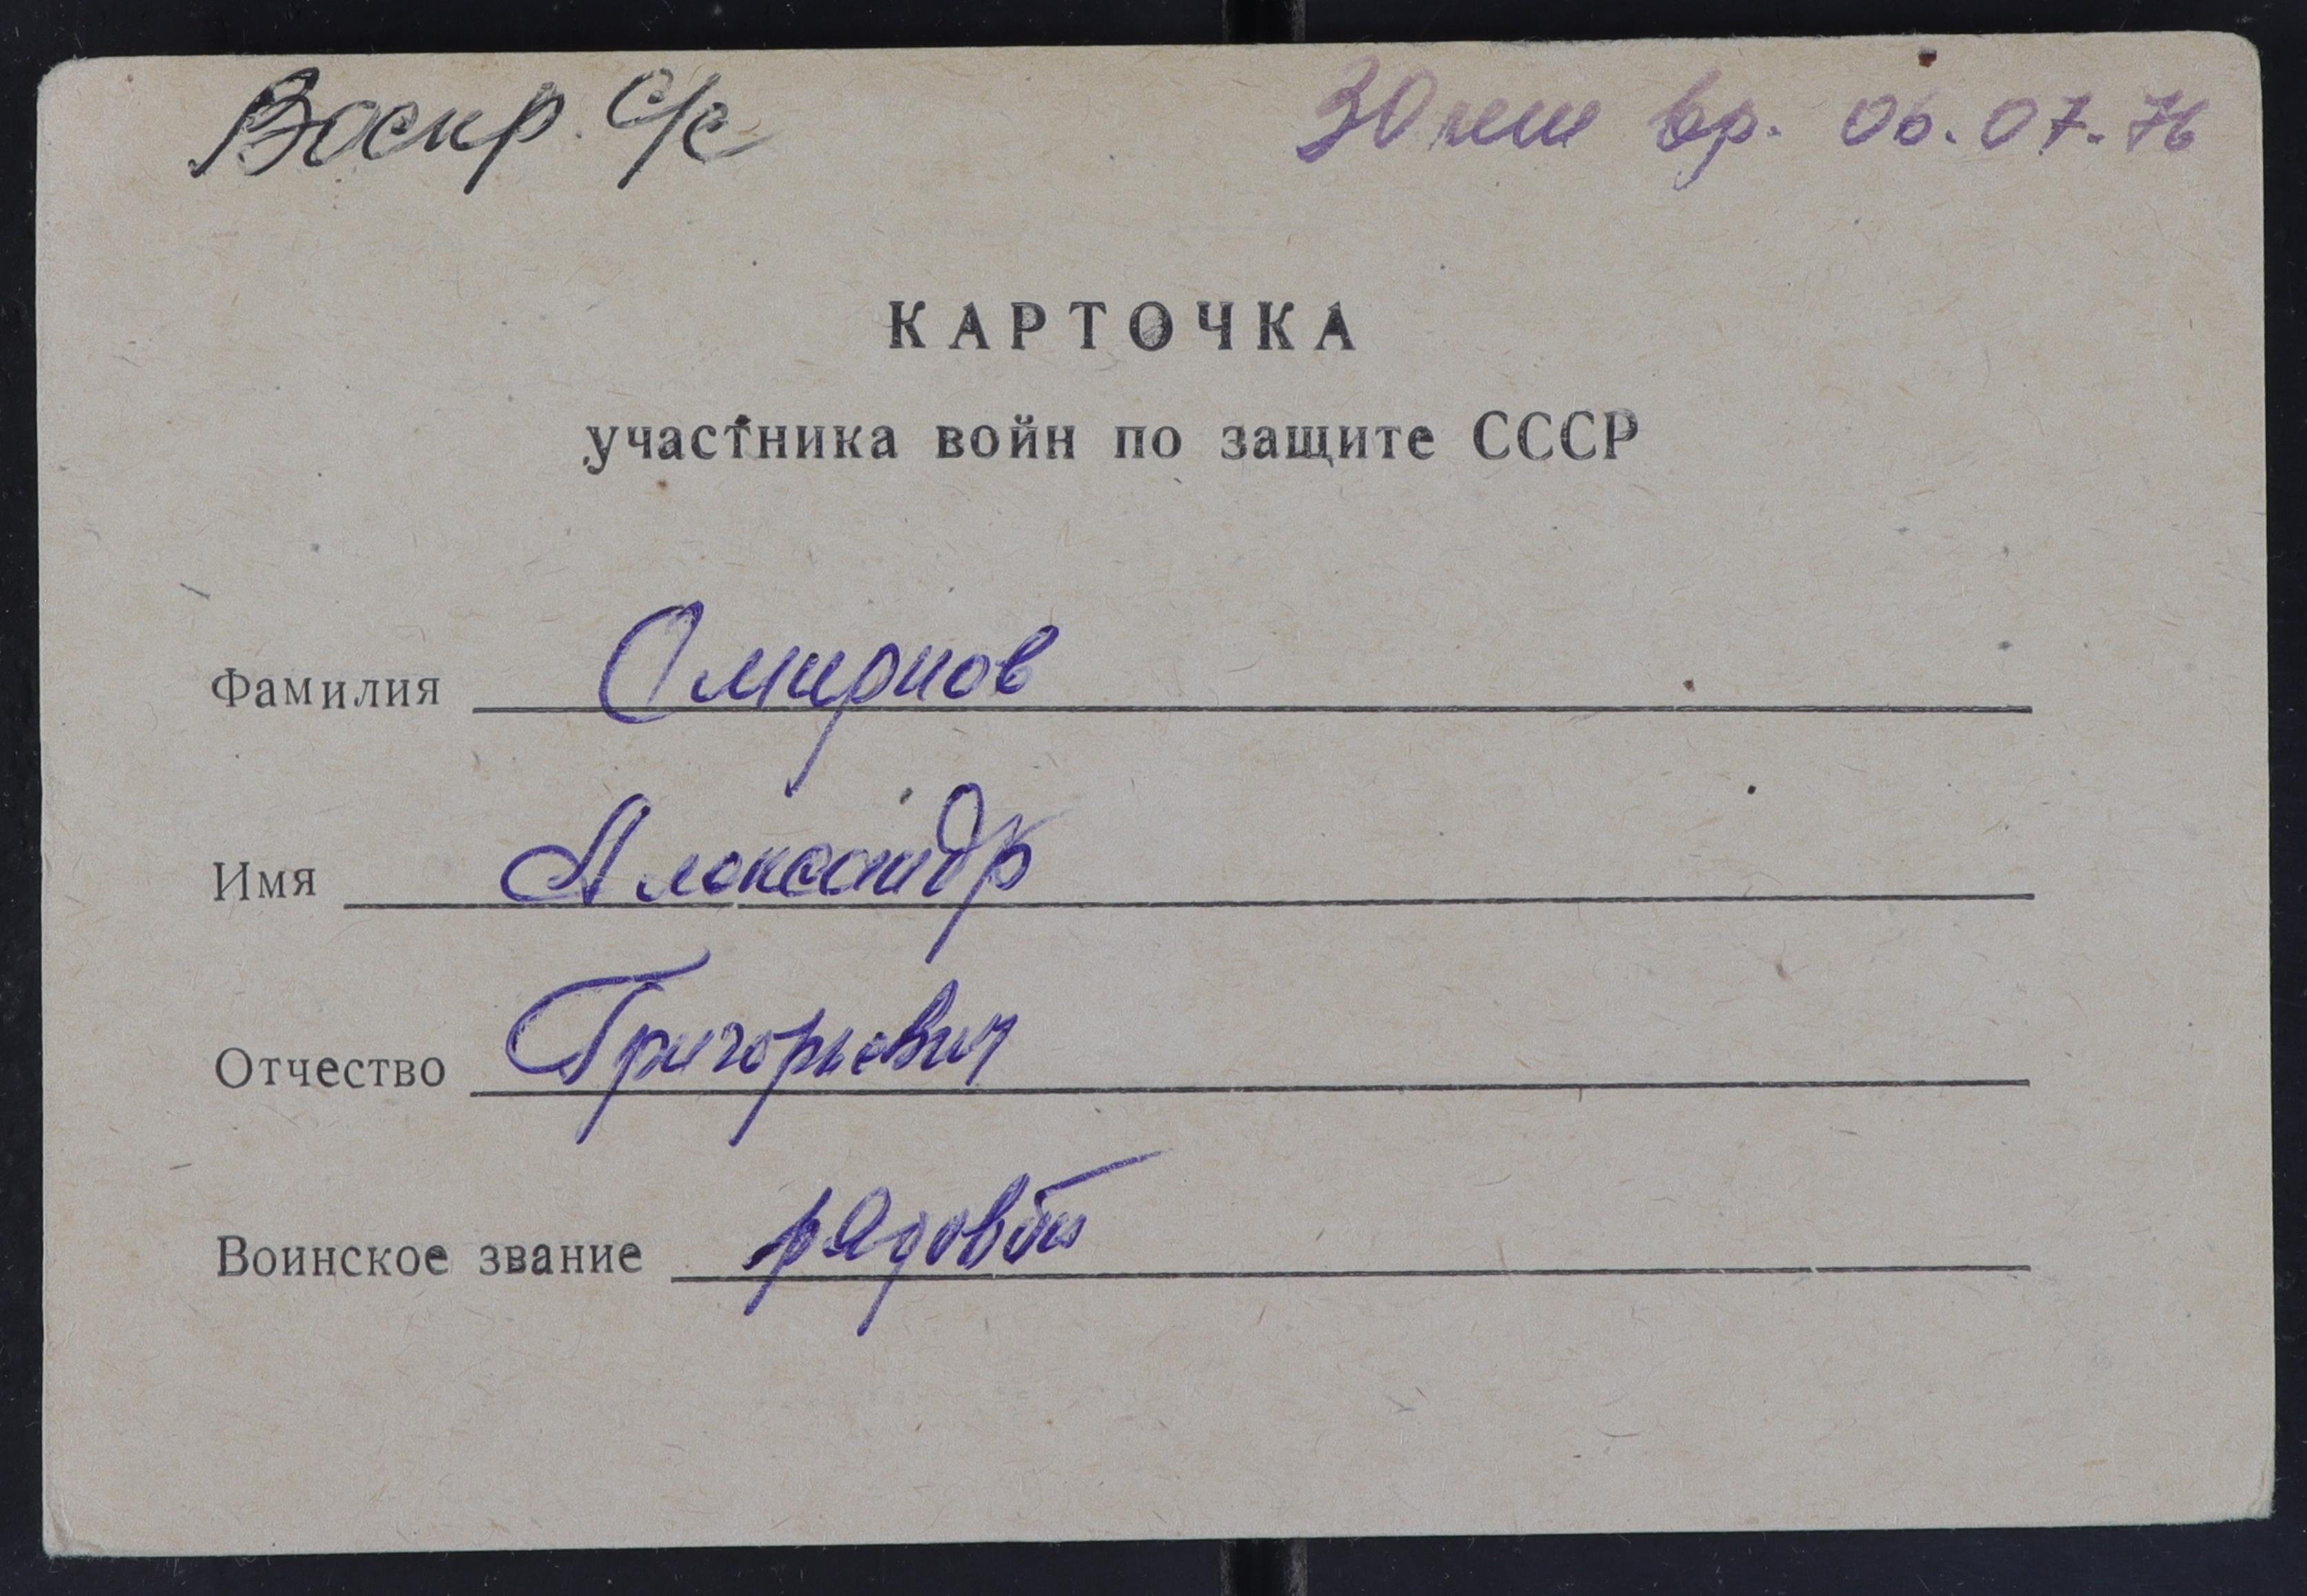 Воскр. с/с
30 лет вр. 06.07.76
КАРТОЧКА
участника войн по защите СССР
Фамилия Смирнов
Имя Александр
Отчество Григорьевич
Воинское звание рядовой